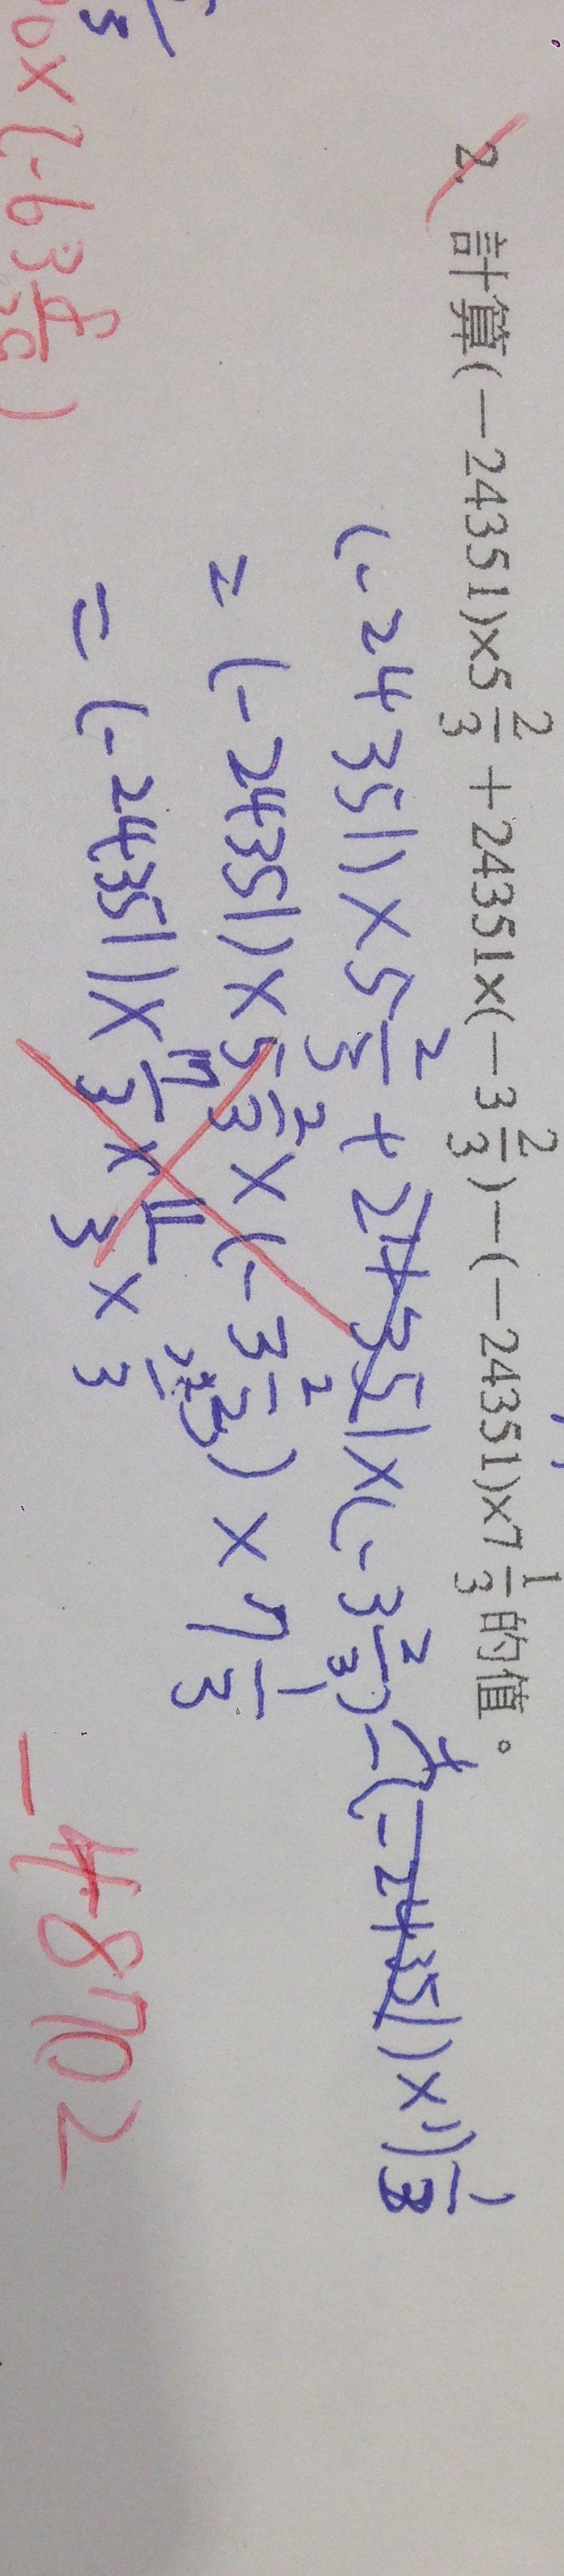 2. 計算(－24351)×5 2/3＋24351×(－3 2/3)－(－24351)×7 1/3的值。
(-24351)×5 2/3 + 24351×(-3 2/3)-(-24351)×7 1/3
= (-24351)×5 2/3×(-3 2/3)×7 1/3
= (-24351)×17/3×11/3×
-48702
×(-63